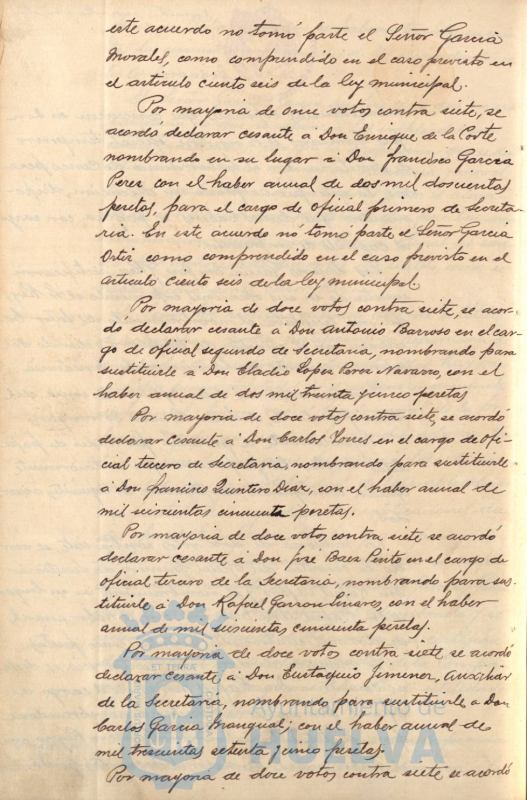 este acuerdo no tomó parte el Señor García
Morales, como comprendido en el caso previsto en
el artículo ciento seis de la ley municipal.
Por mayoria de once votos contra siete, se
acordó declarar cesante á Don Enrique de la Corte
nombrando en su lugar á Don Francisco Garcia
Perez con el haber anual de dos mil doscientas
pesetas, para el cargo de oficial primero de Secreta-
ría. En este acuerdo nó tomó parte el Señor Garcia
Ortiz como comprendido en el caso previsto en el
artículo ciento seis de la ley municipal.
Por mayoria de doce votos contra siete, se acor-
dó declarar cesante á Don Antonio Barroso en el car-
go de oficial segundo de Secretaria, nombrando para
sustituirle á Don Eladio Lopez Perez Navarro, con el
haber anual de dos mil treinta y cinco pesetas
Por mayoria de doce votos contra siete, se acordó
declarar cesante á Don Carlos en el cargo de ofi-
cial tercero de Secretaria, nombrando para sustituirle
á Don Francisco Quintero Diaz, con el haber anual de
mil seiscientas cincuenta pesetas.
Por mayoria de doce votos contra siete se acordó
declarar cesante á Don José Baez Pinto en el cargo de
oficial tercero de la Secretaria, nombrando para sus-
tituirle á Don Rafael Garzon Linares, con el haber
anual de mil seiscientas cincuenta pesetas.
Por mayoria de doce votos contra siete se acordó
declarar cesante á Don Eustaquio Jimenez, Auxiliar
de la Secretaria, nombrando para sustituirle á Don
Carlos Garcia Mangual; con el haber anual de
mil trescientas setenta y cinco pesetas.
Por mayoria de doce votos contra siete se acordó
ET TERRA
Ayuntamiento de
HUELVA